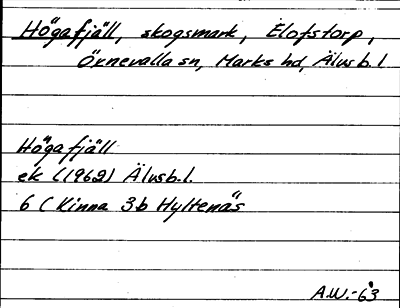 Högafjäll, skogsmark, Elofstorp,
Örnevalla sn, Marks hd, Älvsb. l
Högafjäll
ek (1962) Älvsb. l.
6 ( Kinna 3b Hyltenäs
A.W.-63